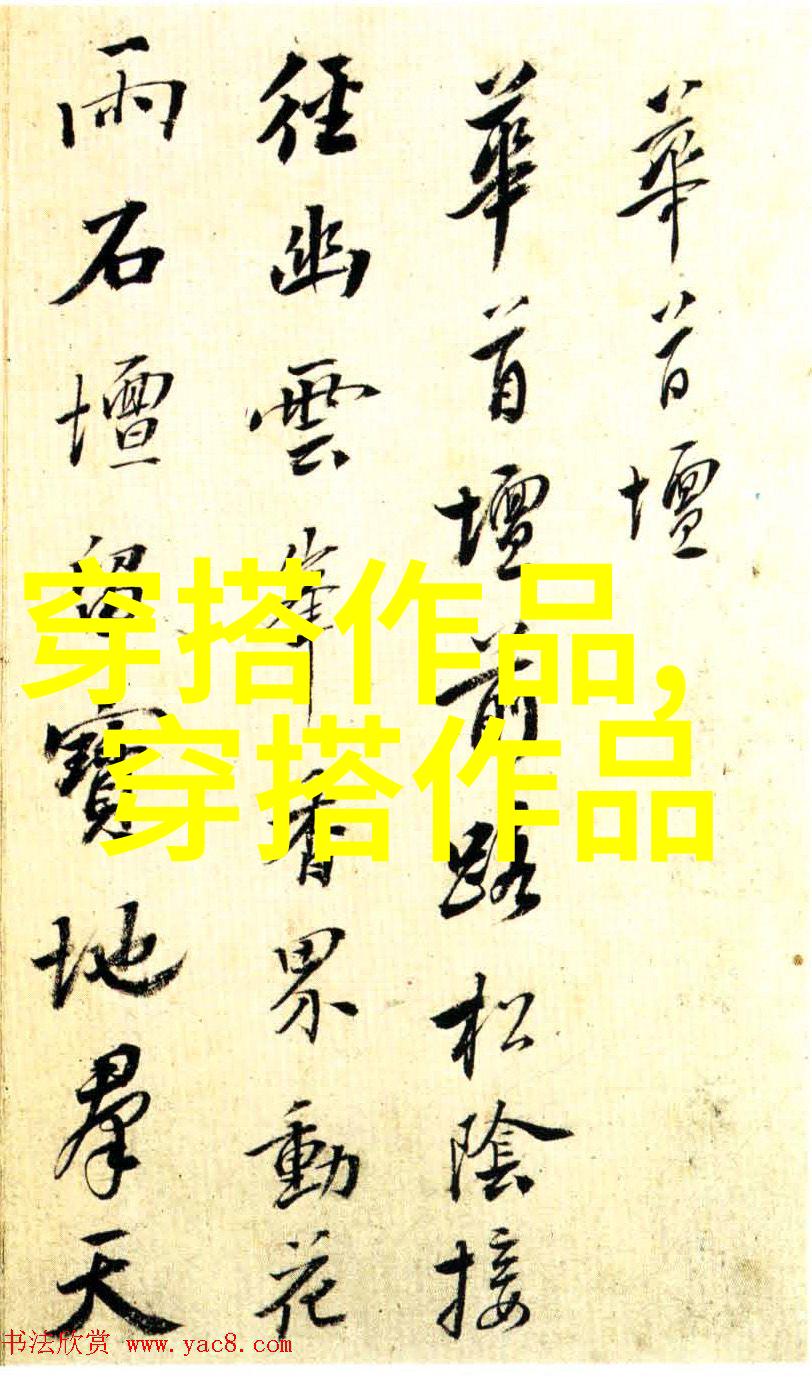 華首壇
華首壇前路松陰接
徑幽雲峯香界動花
雨石壇留寶地羣天
穿搭作品,
穿搭作品
书法欣赏 www.yac8.com